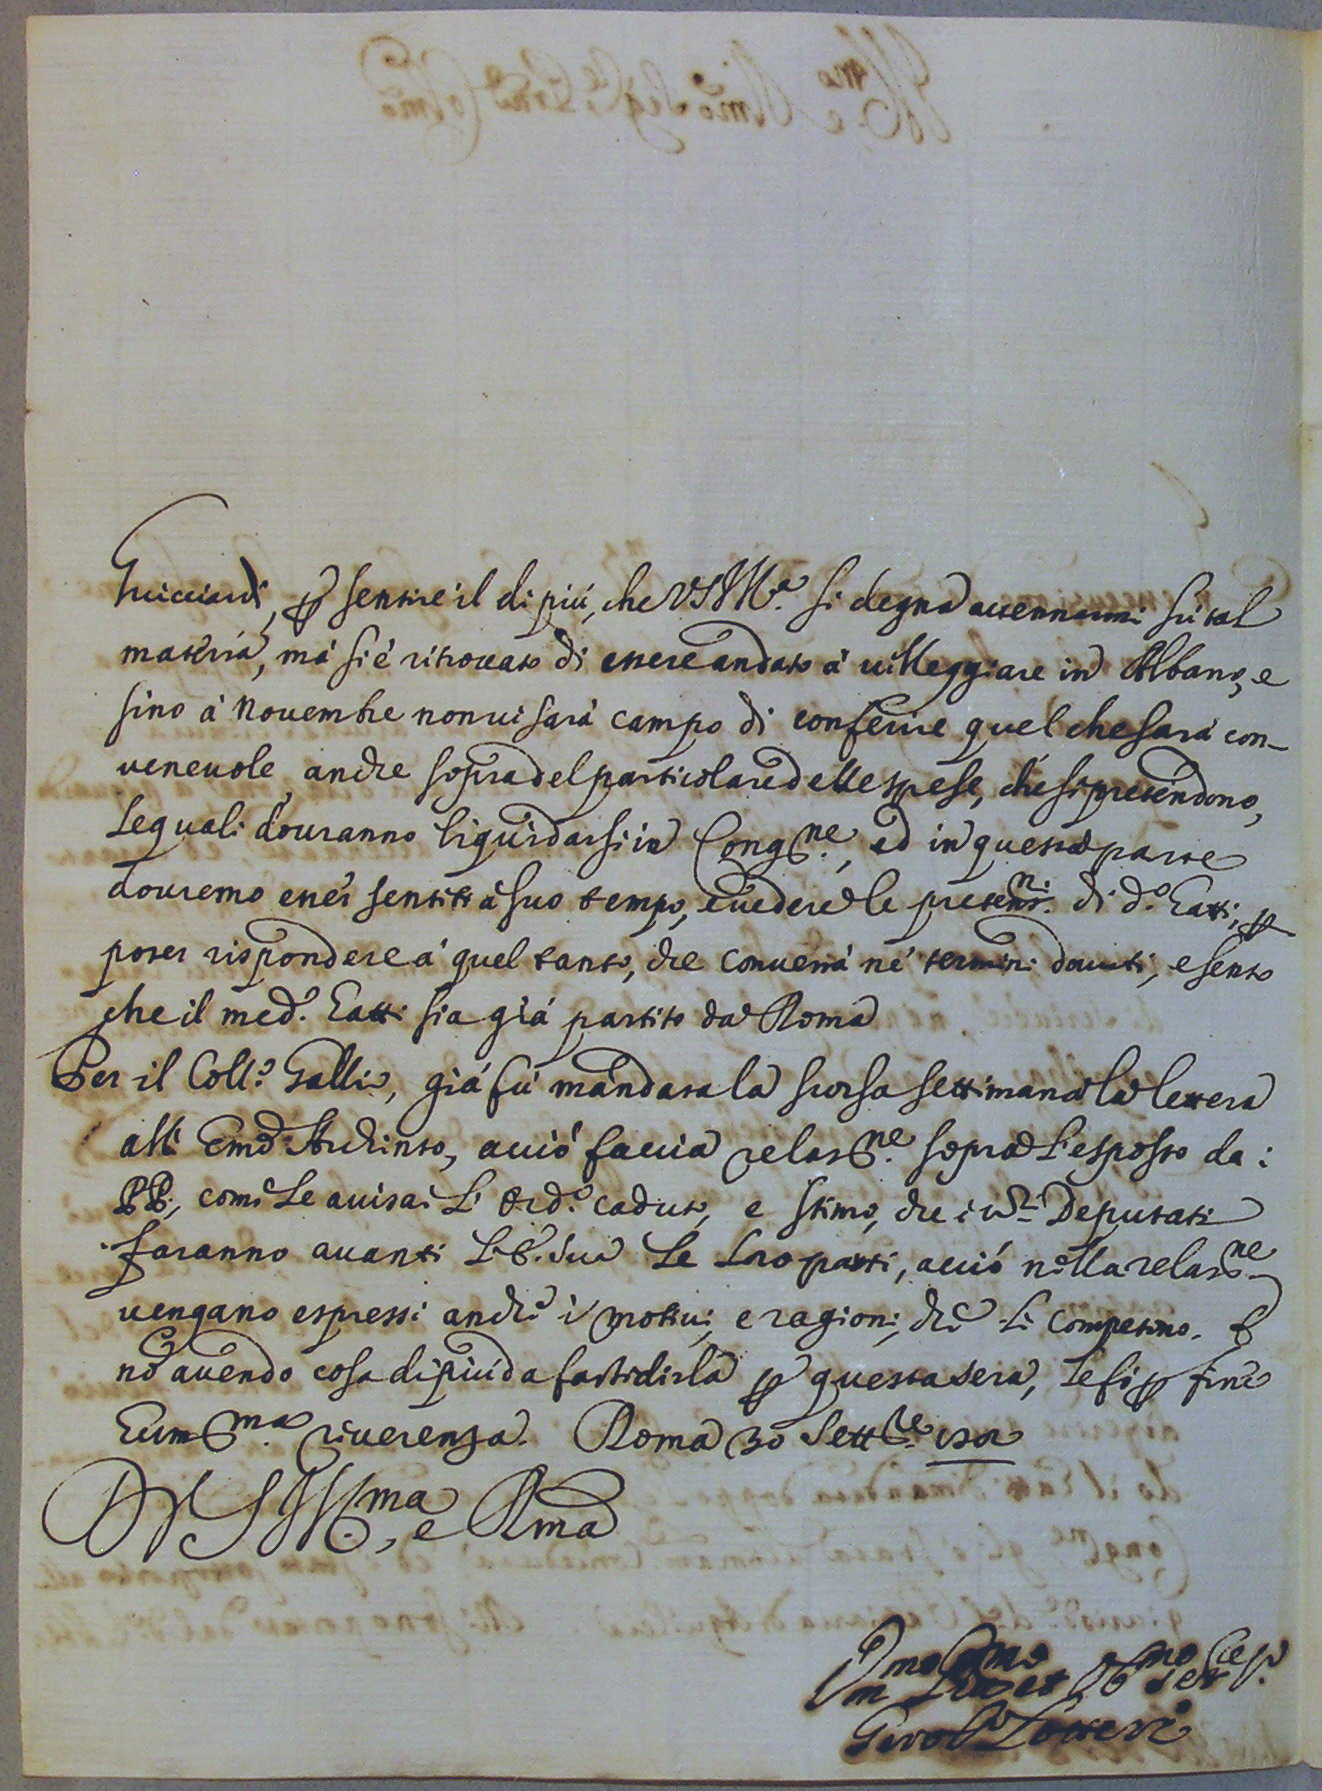 Guicciardi, p sentire il di più, che VS Ill.a si degna accennarmi sù tal
materia, mà si è ritrovato di essere andato à villeggiare in Albano, e
sino à Novembre non vi sarà campo di conferire quel che sarà con-
venevole, anche sopra del particolare delle spese, che si pretendono,
le quali dovranno liquidarsi in Cong.ne, ed in questa parte
dovremo esser sentiti à suo tempo, e vedere le preten.ni di d.o Gatti, p
poter rispondere à quel tanto, che converrà ne' termini dovuti, e sento
che il med.o Gatti sia già partito da Roma
Per il Coll.o Gallio, già fù mandata la scorsa settimana la lettera
all' Em.o Archinto, acciò faccia relat.ne sopra l'esposto da i
PP., come le avisai l' ord.o caduto, e stimo, che i SS.ri Deputati
faranno avanti l'E. Sua le loro parti, acciò nella relat.ne
vengano espressi anche i motivi, e ragioni, che li competono. E
nō avendo cosa di più da fastidirla p questa sera, le fò p fine
Um.ma riverenza. Roma 30 Sett.re 1702
D VS Ill.ma, e Rma